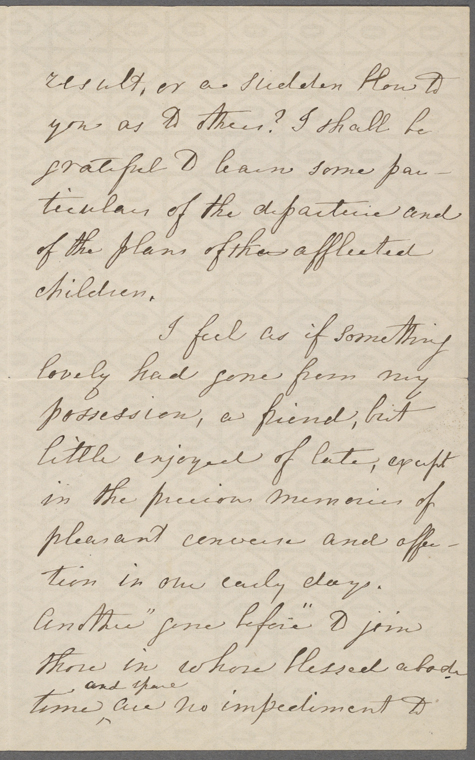 result, or a sudden blow to
you as to others? I shall be
grateful to learn some par-
ticulars of the departure and
of the plans of the afflicted
children.
I feel as if something
lovely had gone from my
possession, a friend, but
little enjoyed of late, except
in the precious memories of
pleasant converse and affec-
tion in our early days.
Another "gone before" to join
those in whose blessed abode
time and space are no impediment to